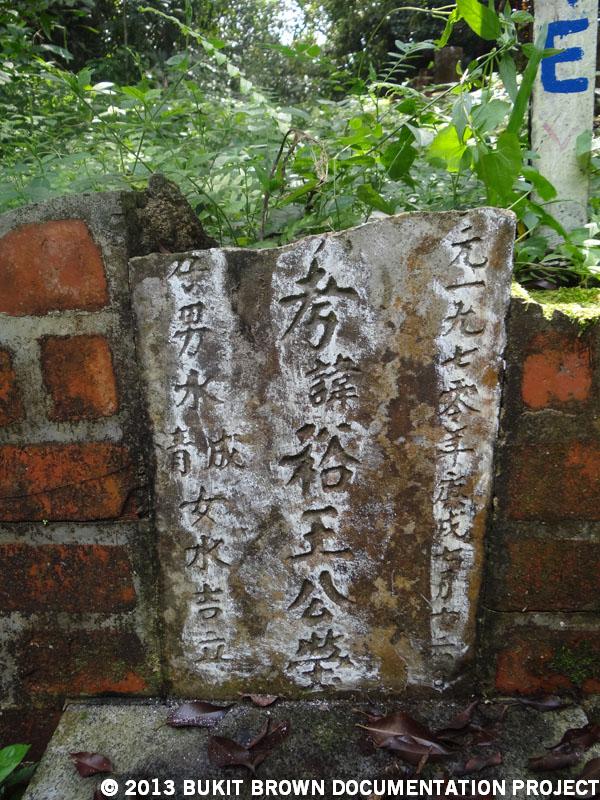 元一九七零年庚戌七月十二日
考諱裕王公塋
男水成清女水吉立
E
© 2013 BUKIT BROWN DOCUMENTATION PROJECT